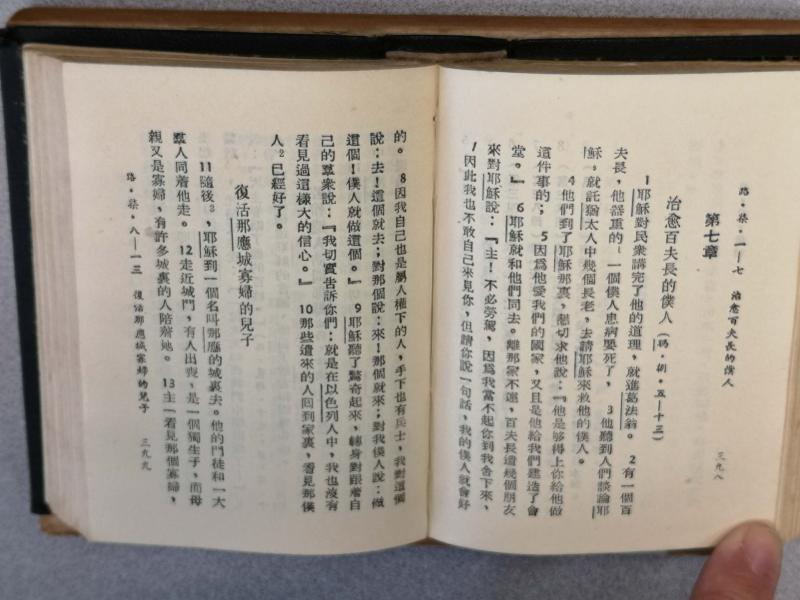 路·柒·一—七　治愈百夫長的僕人　三九八
第七章
治愈百夫長的僕人（瑪·捌·五—十三）
1耶穌對民衆講完了他的道理，就進葛法翁。 2有一個百
夫長，他器重的一個僕人患病要死了， 3他聽到人們談論耶
穌，就託猶太人中幾個長老，去請耶穌來救他的僕人。
4他們到了耶穌那裏，懇切求他說：『他是够得上你給他做
這件事的； 5因爲他愛我們的國家，又且是他給我們建造了會
堂。』 6耶穌就和他們同去。離那家不遠，百夫長遣幾個朋友
來對耶穌說：『主！不必勞駕，因爲我當不起你到我舍下來，
7因此我也不敢自己來見你，但請你說一句話，我的僕人就會好
的。 8因我自己也是屬人權下的人，手下也有兵士，我對這個
說：去！這個就去；對那個說：來！那個就來；對我僕人說：做
這個！僕人就做這個。』 9耶穌聽了驚奇起來，轉身對跟着自
己的羣衆說：『我切實告訴你們：就是在以色列人中，我也沒有
看見過這樣大的信心。』 10那些遣來的人回到家裏，看見那僕
人2已經好了。
復活那應城寡婦的兒子
11隨後3，耶穌到一個名叫那應的城裏去。他的門徒和一大
羣人同着他走。 12走近城門，有人出喪，是一個獨生子，而母
親又是寡婦，有許多城裏的人陪着她。 13主一看見那個寡婦，
路·柒·八—一三　復活那應城寡婦的兒子　三九九